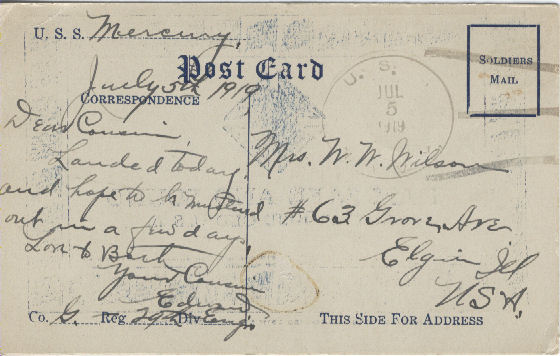 U. S. S. Mercury,
Post Card
July 5th 1919
CORRESPONDENCE
Dear Cousin
Landed today,
and hope to be mustered
out in a few days.
Love to Bert
Your Cousin
Edward
Co. G. Reg 29th Div Eng.
SOLDIERS
MAIL
U. S.
JUL
5
1919
Mrs. W. W. Wilson
#63 Grove Ave
Elgin Ill
USA.
THIS SIDE FOR ADDRESS